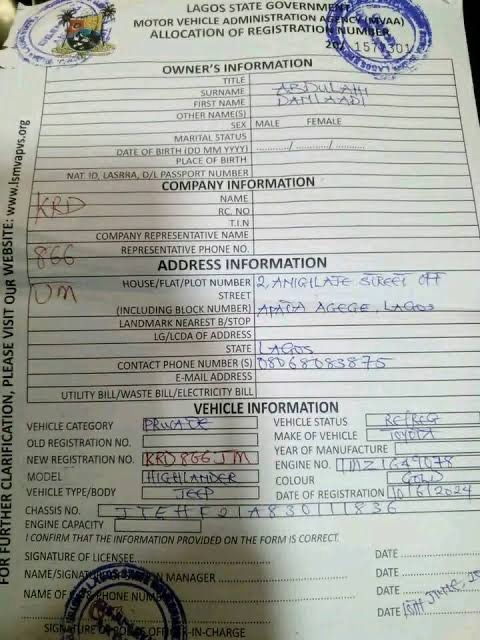 LAGOS STATE GOVERNMENT
MOTOR VEHICLE ADMINISTRATION AGENCY (MVAA)
ALLOCATION OF REGISTRATION NUMBER
OWNER'S INFORMATION
TITLE
SURNAME ABDULAHI
FIRST NAME DANLAADI
OTHER NAME(S)
SEX MALE FEMALE
MARITAL STATUS
DATE OF BIRTH (DD MM YYYY) ......./........./.........
PLACE OF BIRTH
NAT. ID, LASRRA, D/L PASSPORT NUMBER
COMPANY INFORMATION
KRD NAME
RC. NO
T.I.N
COMPANY REPRESENTATIVE NAME
866 REPRESENTATIVE PHONE NO.
ADDRESS INFORMATION
JM HOUSE/FLAT/PLOT NUMBER 2, ANIGILAJE STREET OFF
STREET
(INCLUDING BLOCK NUMBER) AGEGE, LAGOS
LANDMARK NEAREST B/STOP
LG/LCDA OF ADDRESS
STATE LAGOS
CONTACT PHONE NUMBER (S) 08068083875
E-MAIL ADDRESS
UTILITY BILL/WASTE BILL/ELECTRICITY BILL
VEHICLE INFORMATION
VEHICLE CATEGORY PRIVATE VEHICLE STATUS REFREG
OLD REGISTRATION NO. MAKE OF VEHICLE TOYOTA
NEW REGISTRATION NO. KRD 866 JM YEAR OF MANUFACTURE
MODEL HIGHLANDER ENGINE NO.
VEHICLE TYPE/BODY JEEP COLOUR GOLD
DATE OF REGISTRATION 10/6/2024
CHASSIS NO. JTEHF21A830111836
ENGINE CAPACITY
I CONFIRM THAT THE INFORMATION PROVIDED ON THE FORM IS CORRECT.
SIGNATURE OF LICENSEE DATE
NAME/SIGNATURE MANAGER DATE
NAME OF PHONE NUMBER DATE
SIGNATURE OF OFFICER-IN-CHARGE DATE
FOR FURTHER CLARIFICATION, PLEASE VISIT OUR WEBSITE: www.lsmvapvs.org